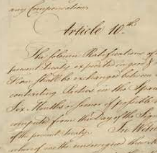 any Compensation.
Article 10th
The solemn Ratifications of
present treaty expedited in good &
Form shall be exchanged between
contracting Parties in the Space
Six Months or sooner if possible
computed from the day of the
of the present treaty. In Witness
whereof we the undersigned